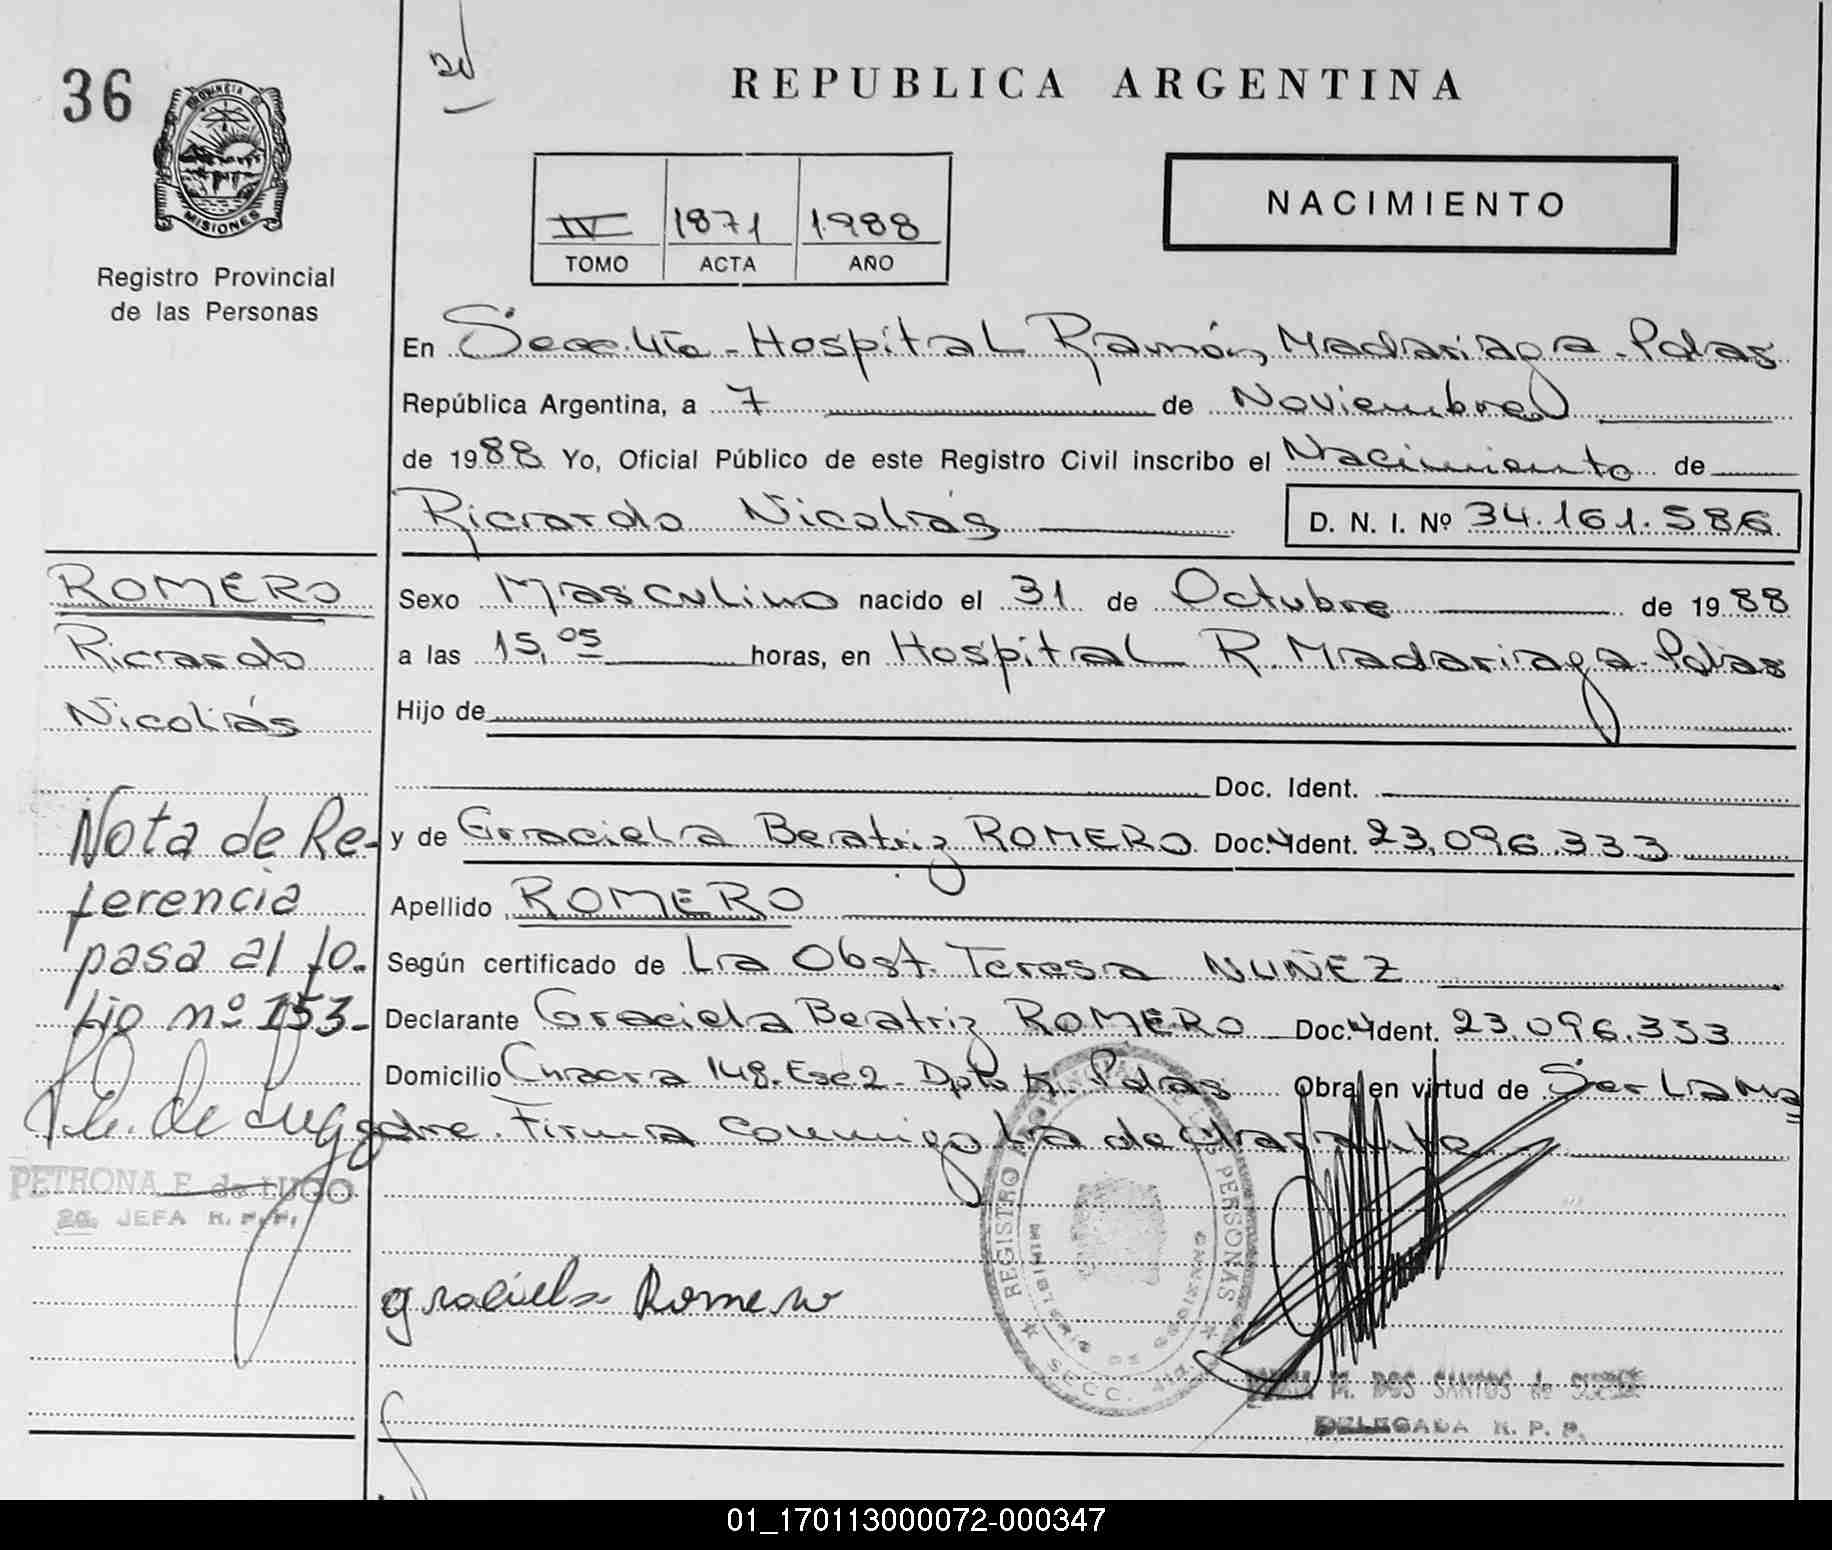 36
REPUBLICA ARGENTINA
PROVINCIA DE
MISIONES
Registro Provincial
de las Personas
NACIMIENTO
IV 1871 1988
TOMO ACTA AÑO
En Secc. 4ta - Hospital Ramón Madariaga - Pdas
República Argentina, a 7 de Noviembre
de 1988 Yo, Oficial Público de este Registro Civil inscribo el Nacimiento de
Ricardo Nicolás D. N. I. Nº 34.161.586
ROMERO
Ricardo
Nicolás
Sexo Masculino nacido el 31 de Octubre de 1988
a las 15,05 horas, en Hospital R. Madariaga - Pdas
Hijo de
Doc. Ident.
y de Graciela Beatriz ROMERO Doc. Ident. 23.096.333
Apellido ROMERO
Según certificado de La Obst. Teresa NUÑEZ
Declarante Graciela Beatriz ROMERO Doc. Ident. 23.096.333
Domicilio Chacra 148 - Esc 2 - Dpto K - Pdas Obra en virtud de Ser La Ma
dre. Firma conmigo la declarante
Nota de Re-
ferencia
pasa al fo-
lio nº 153-
PETRONA F. de LUGO
2a. JEFA R. P. P.
Graciela Romero
REGISTRO PROVINCIAL DE LAS PERSONAS
SECC. 4ta.
M. DOS SANTOS de
DELEGADA R. P. P.
01_170113000072-000347